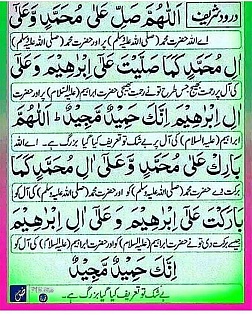 درود شریف اَللّٰهُمَّ صَلِّ عَلٰى مُحَمَّدٍ وَّعَلٰٓى
اے اللہ حضرت محمد (صلی اللہ علیہ وسلم) پر اور حضرت محمد (صلی اللہ علیہ وسلم)
اٰلِ مُحَمَّدٍ كَمَا صَلَّيْتَ عَلٰٓى اِبْرٰهِيْمَ وَعَلٰٓى
کی آل پر رحمت بھیج جس طرح تو نے رحمت بھیجی حضرت ابراہیم (علیہ السلام) پر اور حضرت
اٰلِ اِبْرٰهِيْمَ اِنَّكَ حَمِيْدٌ مَّجِيْدٌ اَللّٰهُمَّ
ابراہیم (علیہ السلام) کی آل پر بے شک تو تعریف کیا گیا بزرگ ہے۔ اے اللہ
بَارِكْ عَلٰى مُحَمَّدٍ وَّعَلٰٓى اٰلِ مُحَمَّدٍ كَمَا
برکت دے حضرت محمد (صلی اللہ علیہ وسلم) کو اور حضرت محمد (صلی اللہ علیہ وسلم) کی آل کو
بَارَكْتَ عَلٰٓى اِبْرٰهِيْمَ وَعَلٰٓى اٰلِ اِبْرٰهِيْمَ
جیسے برکت دی تو نے حضرت ابراہیم (علیہ السلام) کو اور حضرت ابراہیم (علیہ السلام) کی آل کو
اِنَّكَ حَمِيْدٌ مَّجِيْدٌ
بے شک تو تعریف کیا گیا بزرگ ہے۔